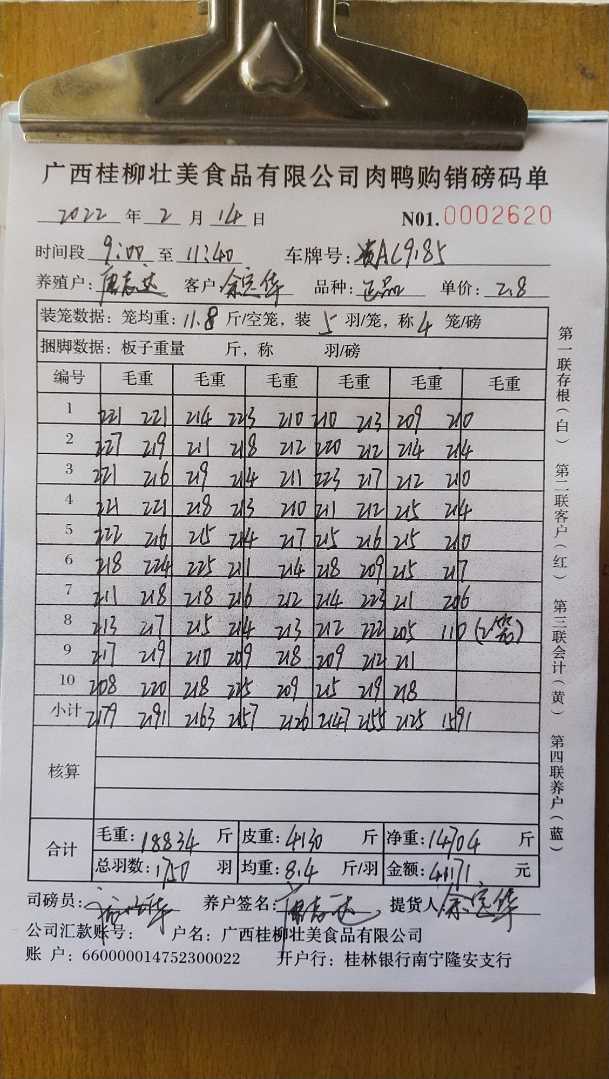 广西桂柳壮美食品有限公司肉鸭购销磅码单
2022 年 2 月 14 日 N01.0002620
时间段 9:00 至 11:40 车牌号: AC9185
养殖户: 唐志达 客户 余定华 品种: 正品 单价: 2.8
装笼数据: 笼均重: 11.8 斤/空笼, 装 5 羽/笼, 称 4 笼/磅
捆脚数据: 板子重量 斤, 称 羽/磅
编号 毛重 毛重 毛重 毛重 毛重 毛重
1 221 221 214 223 210 210 213 209 210
2 227 219 211 218 212 220 212 214 214
3 221 216 219 214 211 223 217 212 210
4 221 221 218 213 210 211 212 215 214
5 222 216 215 214 217 215 216 215 210
6 218 224 225 211 214 218 209 215 217
7 211 218 218 216 212 214 223 211 206
8 213 217 215 214 213 212 222 205 110 (2笼)
9 217 219 210 209 218 209 212 211
10 208 220 218 225 209 215 219 218
小计 2179 2191 2163 2157 2126 2147 2155 2125 1591
核算
合计 毛重: 18834 斤 皮重: 4130 斤 净重: 14704 斤
总羽数: 1750 羽 均重: 8.4 斤/羽 金额: 41171 元
司磅员: 养户签名: 唐志达 提货人 余定华
公司汇款账号: 户名: 广西桂柳壮美食品有限公司
账 户: 660000014752300022 开户行: 桂林银行南宁隆安支行
第一联存根(白) 第二联客户(红) 第三联会计(黄) 第四联养户(蓝)